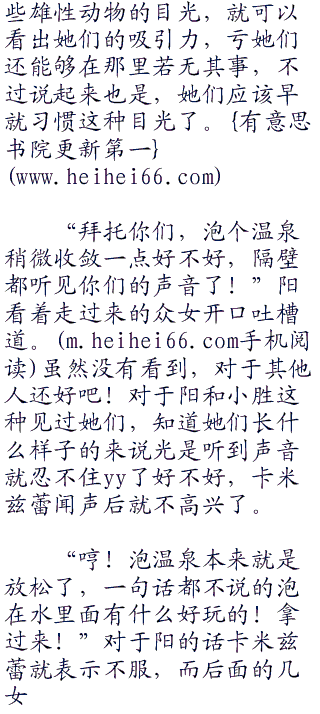 些雄性动物的目光，就可以
看出她们的吸引力，亏她们
还能够在那里若无其事，不
过说起来也是，她们应该早
就习惯这种目光了。{有意思
书院更新第一}
(www.heihei66.com)
“拜托你们，泡个温泉
稍微收敛一点好不好，隔壁
都听见你们的声音了！”阳
看着走过来的众女开口吐槽
道。(m.heihei66.com手机阅
读)虽然没有看到，对于其他
人还好吧！对于阳和小胜这
种见过她们，知道她们长什
么样子的来说光是听到声音
就忍不住yy了好不好，卡米
兹蕾闻声后就不高兴了。
“哼！泡温泉本来就是
放松了，一句话都不说的泡
在水里面有什么好玩的！拿
过来！”对于阳的话卡米兹
蕾就表示不服，而后面的几
女